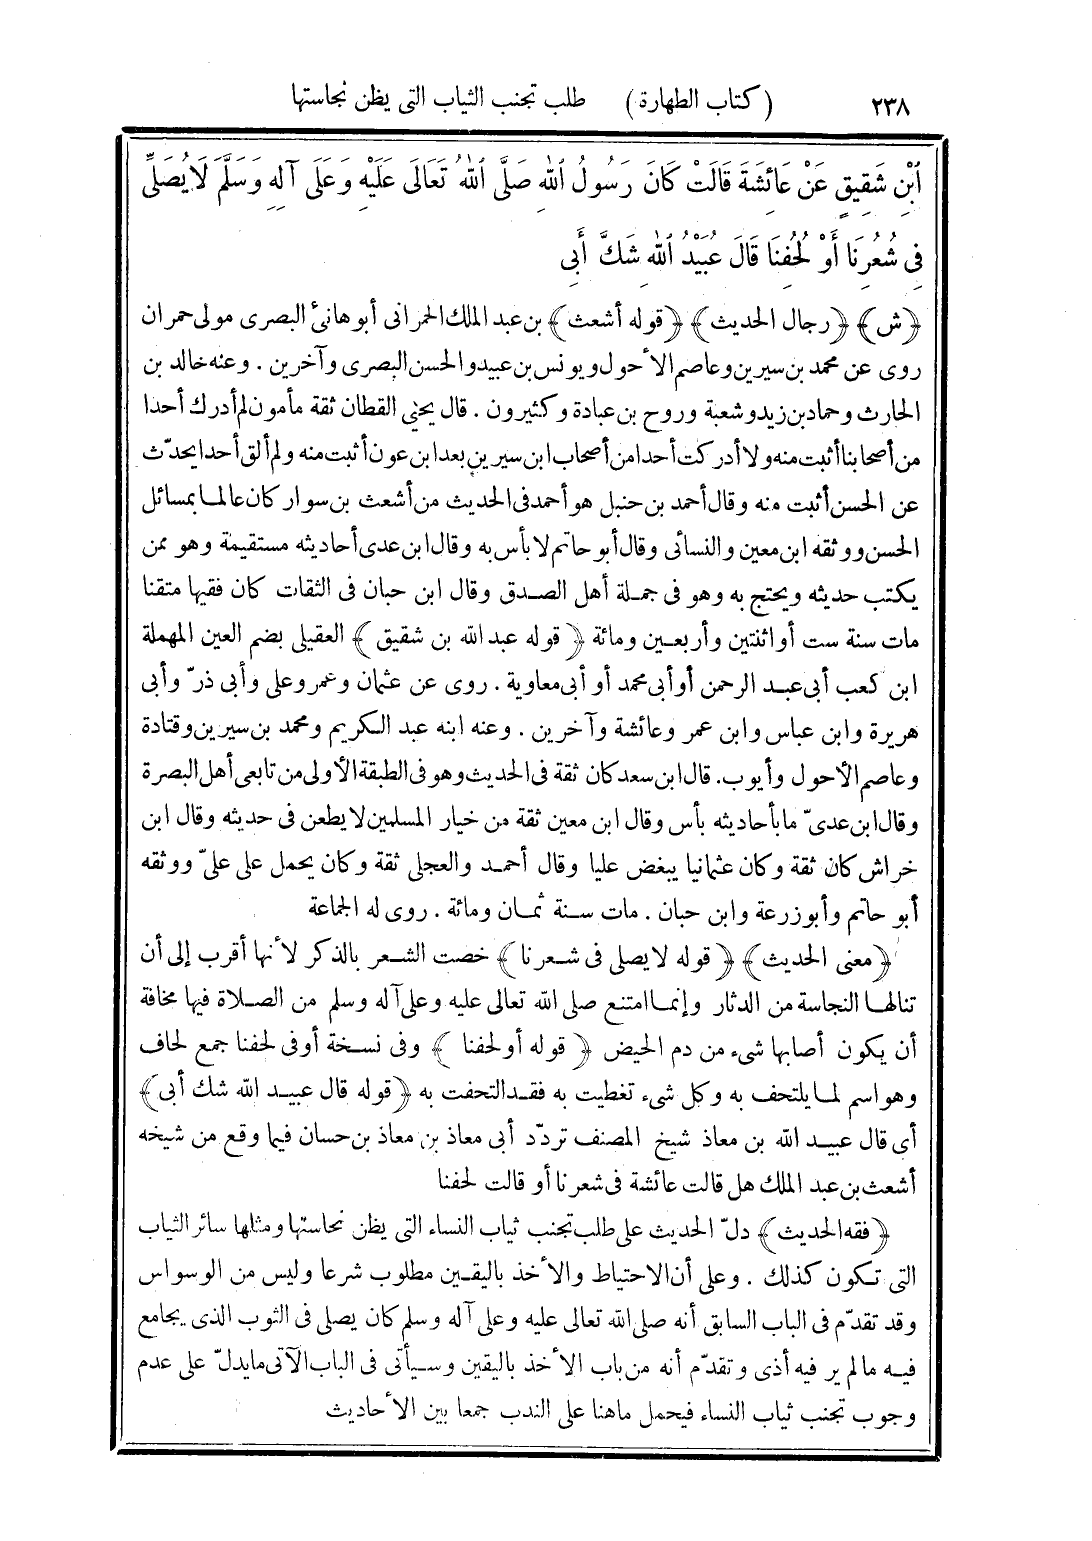 ٢٣٨ (كتاب الطهارة) طلب تجنب الثياب التى يظن نجاستها
ٱبْنِ شَقِيقٍ عَنْ عَائِشَةَ قَالَتْ كَانَ رَسُولُ ٱللهِ صَلَّى ٱللهُ تَعَالَى عَلَيْهِ وَعَلَى آلِهِ وَسَلَّمَ لَا يُصَلِّى
فِى شُعُرِنَا أَوْ لُحُفِنَا قَالَ عُبَيْدُ ٱللهِ شَكَّ أَبِى
﴿ش﴾ ﴿رجال الحديث﴾ ﴿قوله أشعث﴾ بن عبد الملك الحمرانى أبو هانئ البصرى مولى حمران
روى عن محمد بن سيرين وعاصم الأحول ويونس بن عبيد والحسن البصرى وآخرين . وعنه خالد بن
الحارث وحماد بن زيد وشعبة وروح بن عبادة وكثيرون . قال يحيى القطان ثقة مأمون لم أدرك أحدا
من أصحابنا أثبت منه ولا أدركت أحدا من أصحاب ابن سيرين بعد ابن عون أثبت منه ولم ألق أحدا يحدّث
عن الحسن أثبت منه وقال أحمد بن حنبل هو أحمد فى الحديث من أشعث بن سوار كان عالما بمسائل
الحسن ووثقه ابن معين والنسائى وقال أبو حاتم لا بأس به وقال ابن عدى أحاديثه مستقيمة وهو ممن
يكتب حديثه ويحتج به وهو فى جملة أهل الصدق وقال ابن حبان فى الثقات كان فقيها متقنا
مات سنة ست أو اثنتين وأربعين ومائة ﴿قوله عبد الله بن شقيق﴾ العقيلى بضم العين المهملة
ابن كعب أبى عبد الرحمن أو أبى محمد أو أبى معاوية . روى عن عثمان وعمر وعلى وأبى ذرّ وأبى
هريرة وابن عباس وابن عمر وعائشة وآخرين . وعنه ابنه عبد الكريم ومحمد بن سيرين وقتادة
وعاصم الأحول وأيوب. قال ابن سعد كان ثقة فى الحديث وهو فى الطبقة الأولى من تابعى أهل البصرة
وقال ابن عدىّ ما بأحاديثه بأس وقال ابن معين ثقة من خيار المسلمين لا يطعن فى حديثه وقال ابن
خراش كان ثقة وكان عثمانيا يبغض عليا وقال أحمد والعجلى ثقة وكان يحمل على علىّ ووثقه
أبو حاتم وأبو زرعة وابن حبان . مات سنة ثمان ومائة . روى له الجماعة
﴿معنى الحديث﴾ ﴿قوله لا يصلى فى شعرنا﴾ خصت الشعر بالذكر لأنها أقرب إلى أن
تنالها النجاسة من الدثار وإنما امتنع صلى الله تعالى عليه وعلى آله وسلم من الصلاة فيها مخافة
أن يكون أصابها شىء من دم الحيض ﴿قوله أو لحفنا﴾ وفى نسخة أو فى لحفنا جمع لحاف
وهو اسم لما يلتحف به وكل شىء تغطيت به فقد التحفت به ﴿قوله قال عبيد الله شك أبى﴾
أى قال عبيد الله بن معاذ شيخ المصنف تردّد أبى معاذ بن معاذ بن حسان فيما وقع من شيخه
أشعث بن عبد الملك هل قالت عائشة فى شعرنا أو قالت لحفنا
﴿فقه الحديث﴾ دلّ الحديث على طلب تجنب ثياب النساء التى يظن نجاستها ومثلها سائر الثياب
التى تكون كذلك . وعلى أن الاحتياط والأخذ باليقين مطلوب شرعا وليس من الوسواس
وقد تقدّم فى الباب السابق أنه صلى الله تعالى عليه وعلى آله وسلم كان يصلى فى الثوب الذى يجامع
فيه ما لم ير فيه أذى وتقدّم أنه من باب الأخذ باليقين وسيأتى فى الباب الآتى ما يدلّ على عدم
وجوب تجنب ثياب النساء فيحمل ما هنا على الندب جمعا بين الأحاديث